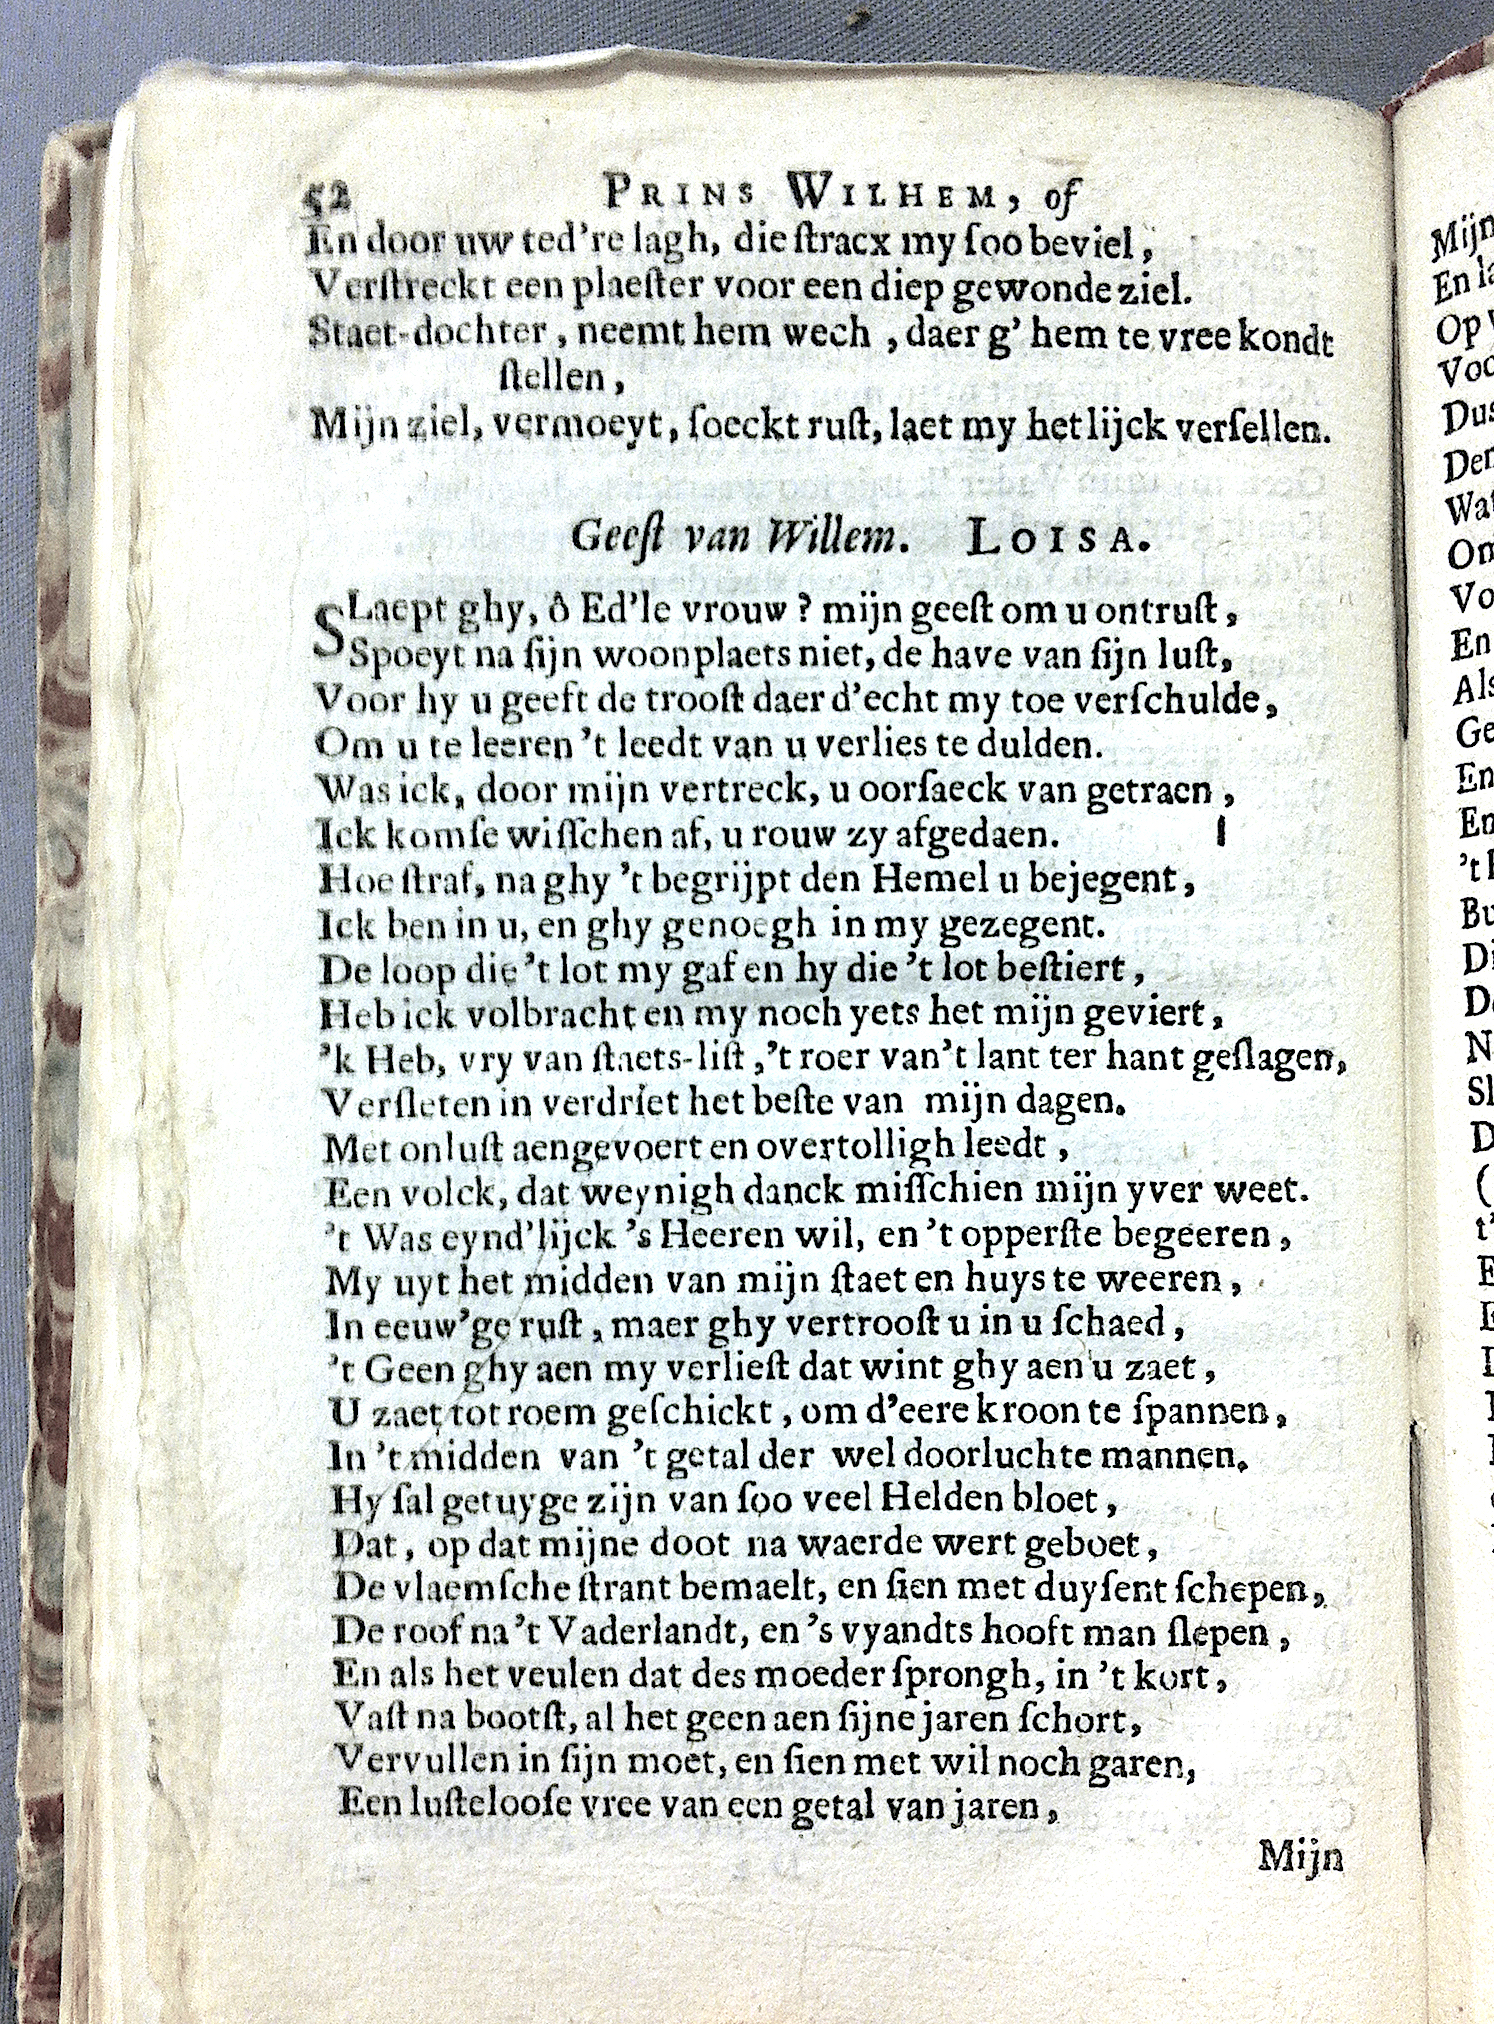 52 PRINS WILHEM, of
En door uw ted're lagh, die ſtracx my ſoo beviel,
Verſtreckt een plaeſter voor een diep gewonde ziel.
Staet-dochter, neemt hem wech, daer g' hem te vree kondt
ſtellen,
Mijn ziel, vermoeyt, ſoeckt ruſt, laet my het lijck verſellen.
Geeſt van Willem. LOISA.
SLaept ghy, ô Ed'le vrouw? mijn geeſt om u ontruſt,
Spoeyt na ſijn woonplaets niet, de have van ſijn luſt,
Voor hy u geeft de trooſt daer d'echt my toe verſchulde,
Om u te leeren 't leedt van u verlies te dulden.
Was ick, door mijn vertreck, u oorſaeck van getraen,
Ick kom ſe wiſſchen af, u rouw zy afgedaen.
Hoe ſtraf, na ghy 't begrijpt den Hemel u bejegent,
Ick ben in u, en ghy genoegh in my gezegent.
De loop die 't lot my gaf en hy die 't lot beſtiert,
Heb ick volbracht en my noch yets het mijn geviert,
'k Heb, vry van ſtaets-liſt, 't roer van't lant ter hant geſlagen,
Verſleten in verdriet het beſte van mijn dagen.
Met onluſt aengevoert en overtolligh leedt,
Een volck, dat weynigh danck miſſchien mijn yver weet.
't Was eynd'lijck 's Heeren wil, en 't opperſte begeeren,
My uyt het midden van mijn ſtaet en huys te weeren,
In eeuw'ge ruſt, maer ghy vertrooſt u in u ſchaed,
't Geen ghy aen my verlieſt dat wint ghy aen u zaet,
U zaet tot roem geſchickt, om d'eere kroon te ſpannen,
In 't midden van 't getal der wel doorluchte mannen.
Hy ſal getuyge zijn van ſoo veel Helden bloet,
Dat, op dat mijne doot na waerde wert geboet,
De vlaemſche ſtrant bemaelt, en ſien met duyſent ſchepen,
De roof na 't Vaderlandt, en 's vyandts hooft man ſlepen,
En als het veulen dat des moeder ſprongh, in 't kort,
Vaſt na bootſt, al het geen aen ſijne jaren ſchort,
Vervullen in ſijn moet, en ſien met wil noch garen,
Een luſtelooſe vree van een getal van jaren,
Mijn
Mijn
En
Op
Voo
Dus
Den
Wa
Om
Vo
En
Als
Ge
En
En
't
Bu
Di
De
N
Sl
D
(